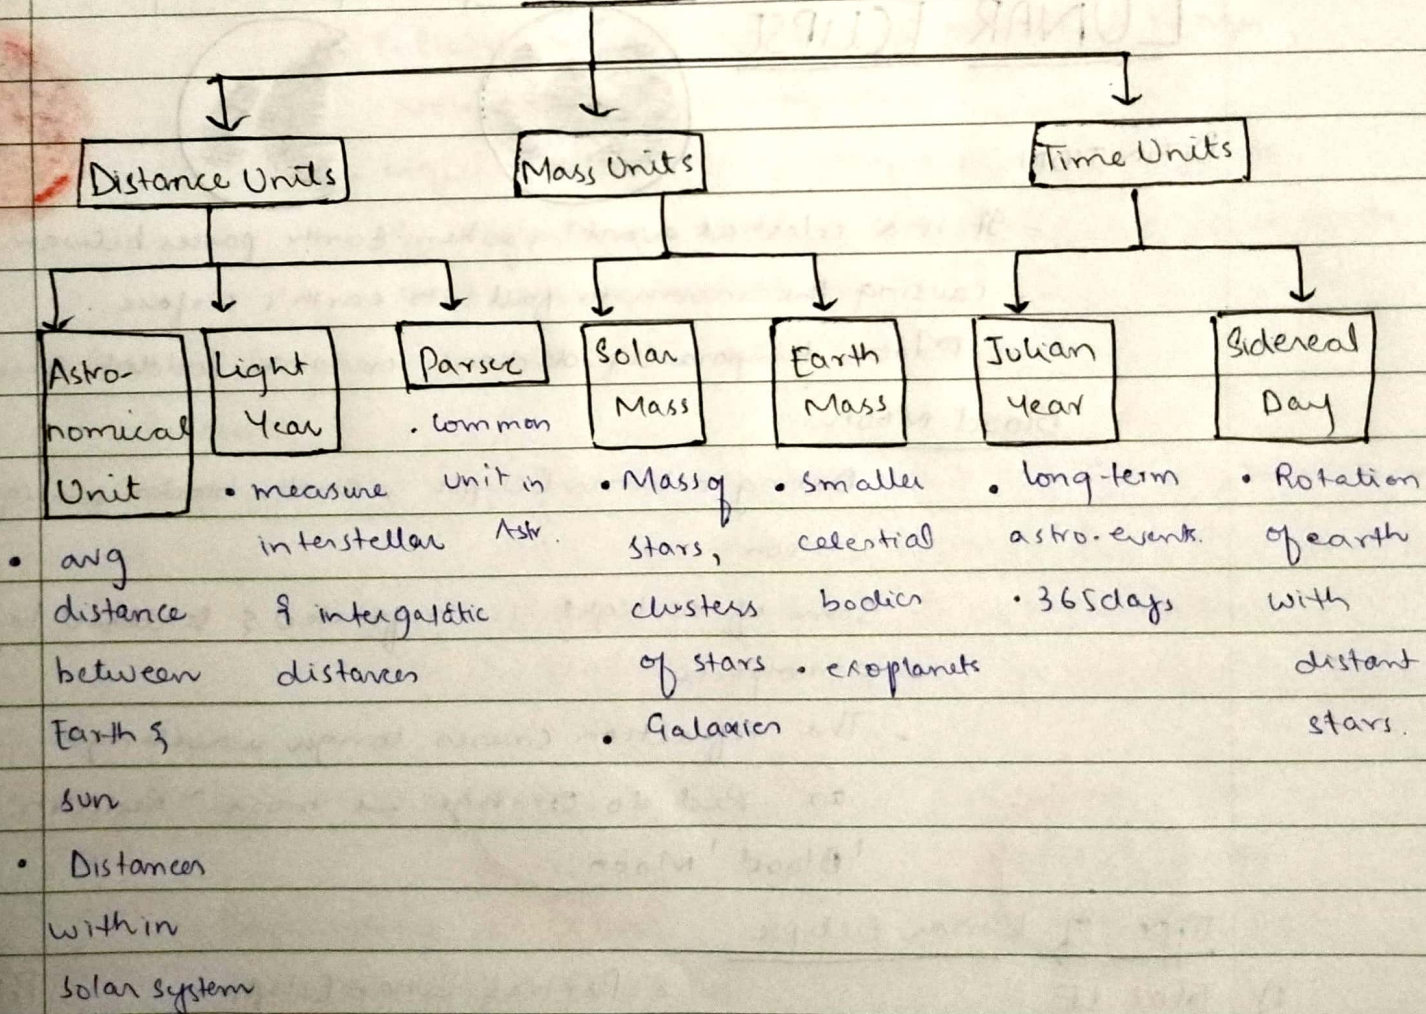 Distance Units
Mass Units
Time Units
Astro-
nomical
Unit
• avg
distance
between
Earth &
sun
• Distances
within
solar system
Light
Year
• measure
interstellar
& intergalatic
distances
Parsec
• common
unit in
Astr.
Solar
Mass
• Mass of
stars,
clusters
of stars
• Galaxies
Earth
Mass
• smaller
celestial
bodies
• exoplanets
Julian
Year
• long-term
astro. events.
• 365days
Sidereal
Day
• Rotation
of earth
with
distant
stars.